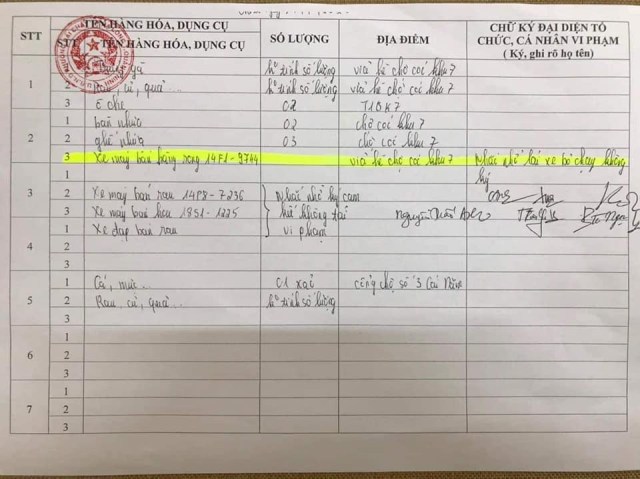 STT
TÊN HÀNG HÓA, DỤNG CỤ
STT TÊN HÀNG HÓA, DỤNG CỤ
SỐ LƯỢNG
ĐỊA ĐIỂM
CHỮ KÝ ĐẠI DIỆN TỔ CHỨC, CÁ NHÂN VI PHẠM
( Ký, ghi rõ họ tên)
1
số lượng vỉa hè chợ coi khu 7
2 Rau, củ, quả... số lượng vỉa hè chợ coi khu 7
3 Ô che 02 T10K7
2
1 bàn nhựa 02 chợ coi khu 7
2 ghế nhựa 03 chợ coi khu 7
3 Xe máy bán hàng rong 14F1-9744 vỉa hè chợ coi khu 7 Nhắc nhở lái xe bỏ chạy không ký
3
1
2 Xe máy bán rau 14P8-7236 Nhắc nhở ký cam
3 Xe máy bán hoa 19S1-1225 kết không tái
4
1 Xe đạp bán rau vi phạm
2
3
5
1 Cá, mực... 01 cổng chợ số 3
2 Rau, củ, quả... số lượng
3
6
1
2
3
7
1
2
3